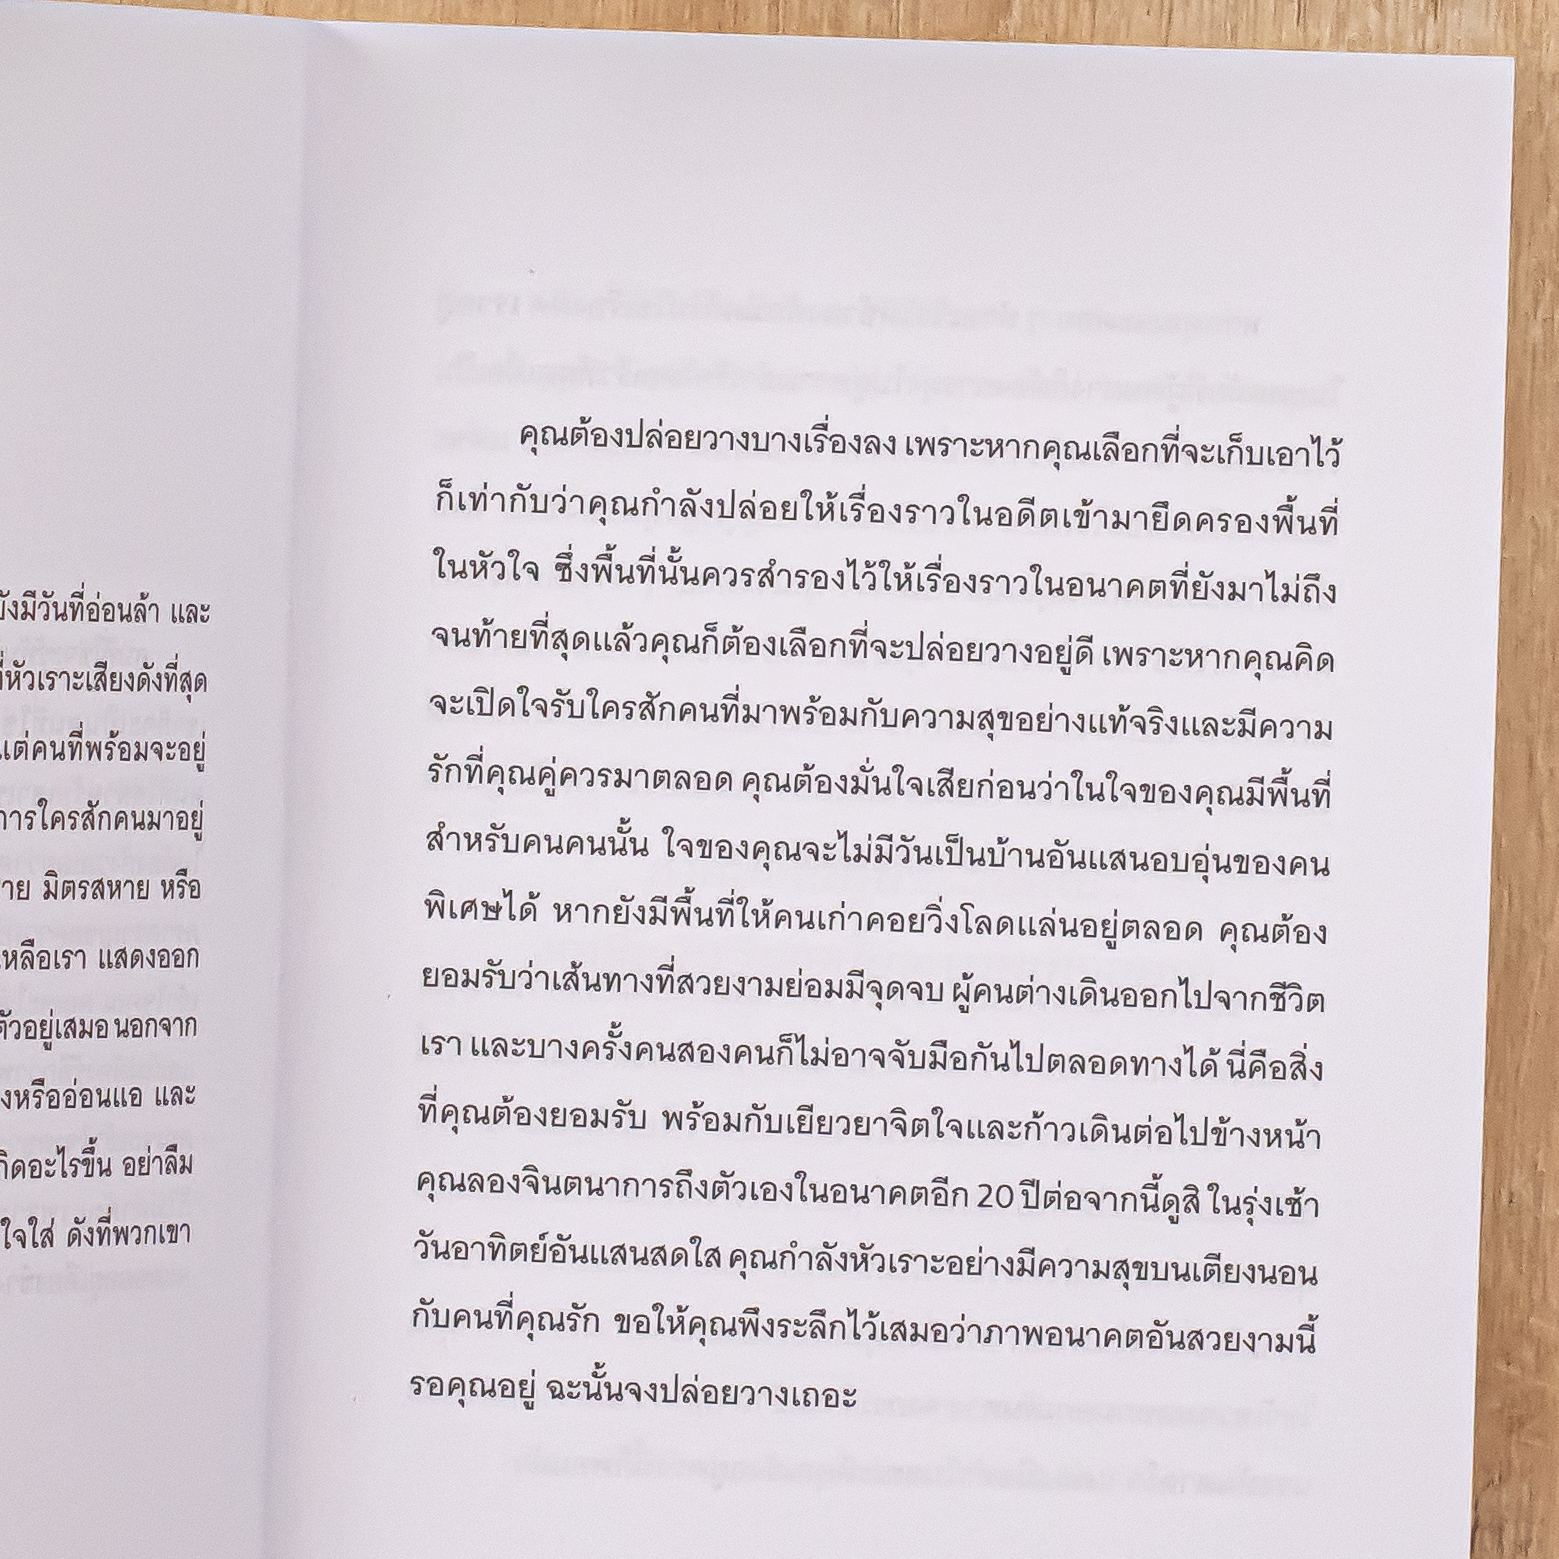 ยังมีวันที่อ่อนล้า และ
ที่หัวเราะเสียงดังที่สุด
แต่คนที่พร้อมจะอยู่
การใครสักคนมาอยู่
มิตรสหาย หรือ
เหลือเรา แสดงออก
ตัวอยู่เสมอ นอกจาก
หรืออ่อนแอ และ
เกิดอะไรขึ้น อย่าลืม
ใจใส่ ดังที่พวกเขา
คุณต้องปล่อยวางบางเรื่องลง เพราะหากคุณเลือกที่จะเก็บเอาไว้
ก็เท่ากับว่าคุณกำลังปล่อยให้เรื่องราวในอดีตเข้ามายึดครองพื้นที่
ในหัวใจ ซึ่งพื้นที่นั้นควรสำรองไว้ให้เรื่องราวในอนาคตที่ยังมาไม่ถึง
จนท้ายที่สุดแล้วคุณก็ต้องเลือกที่จะปล่อยวางอยู่ดี เพราะหากคุณคิด
จะเปิดใจรับใครสักคนที่มาพร้อมกับความสุขอย่างแท้จริงและมีความ
รักที่คุณคู่ควรมาตลอด คุณต้องมั่นใจเสียก่อนว่าในใจของคุณมีพื้นที่
สำหรับคนคนนั้น ใจของคุณจะไม่มีวันเป็นบ้านอันแสนอบอุ่นของคน
พิเศษได้ หากยังมีพื้นที่ให้คนเก่าคอยวิ่งโลดแล่นอยู่ตลอด คุณต้อง
ยอมรับว่าเส้นทางที่สวยงามย่อมมีจุดจบ ผู้คนต่างเดินออกไปจากชีวิต
เรา และบางครั้งคนสองคนก็ไม่อาจจับมือกันไปตลอดทางได้ นี่คือสิ่ง
ที่คุณต้องยอมรับ พร้อมกับเยียวยาจิตใจและก้าวเดินต่อไปข้างหน้า
คุณลองจินตนาการถึงตัวเองในอนาคตอีก 20 ปีต่อจากนี้ดูสิ ในรุ่งเช้า
วันอาทิตย์อันแสนสดใส คุณกำลังหัวเราะอย่างมีความสุขบนเตียงนอน
กับคนที่คุณรัก ขอให้คุณพึงระลึกไว้เสมอว่าภาพอนาคตอันสวยงามนี้
รอคุณอยู่ ฉะนั้นจงปล่อยวางเถอะ